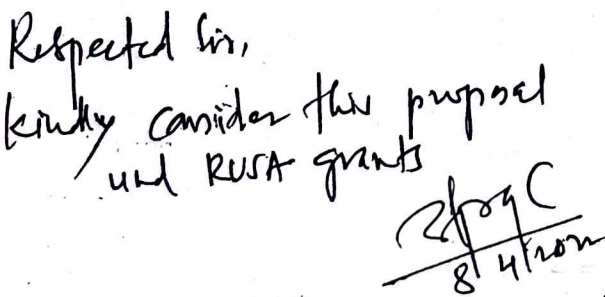 Respected Sir,
kindly consider this proposal
und RUSA grants
8/4/2022